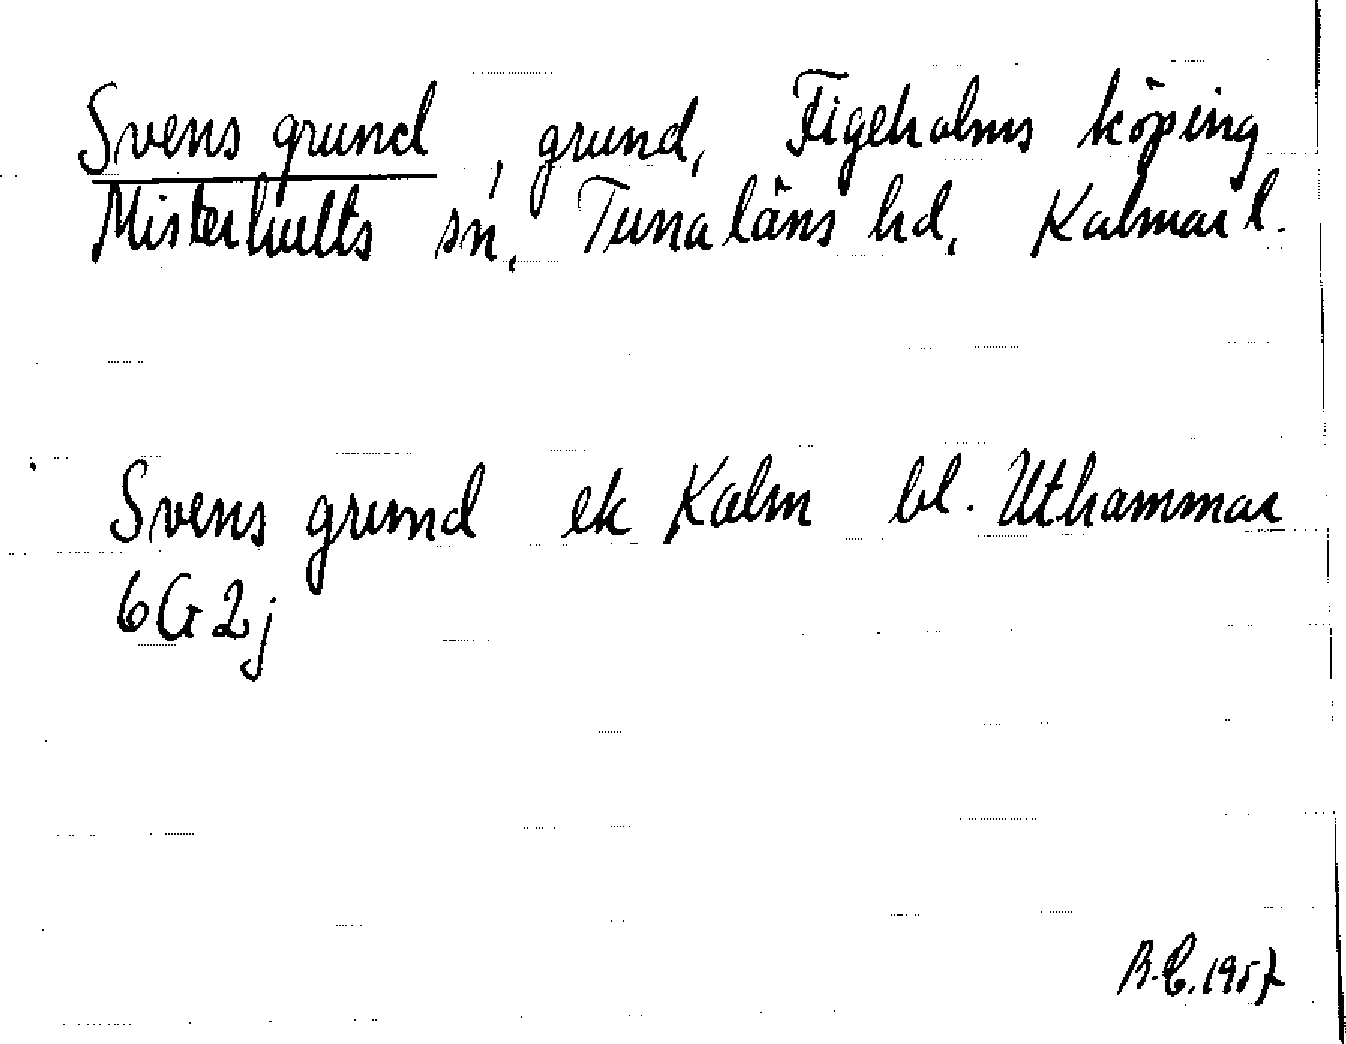 Svens grund, grund, Figeholms köping
Misterhults sn, Tunaläns hd, Kalmar l.
Svens grund ek Kalm bl. Uthammar
6G2j
B.E. 1957